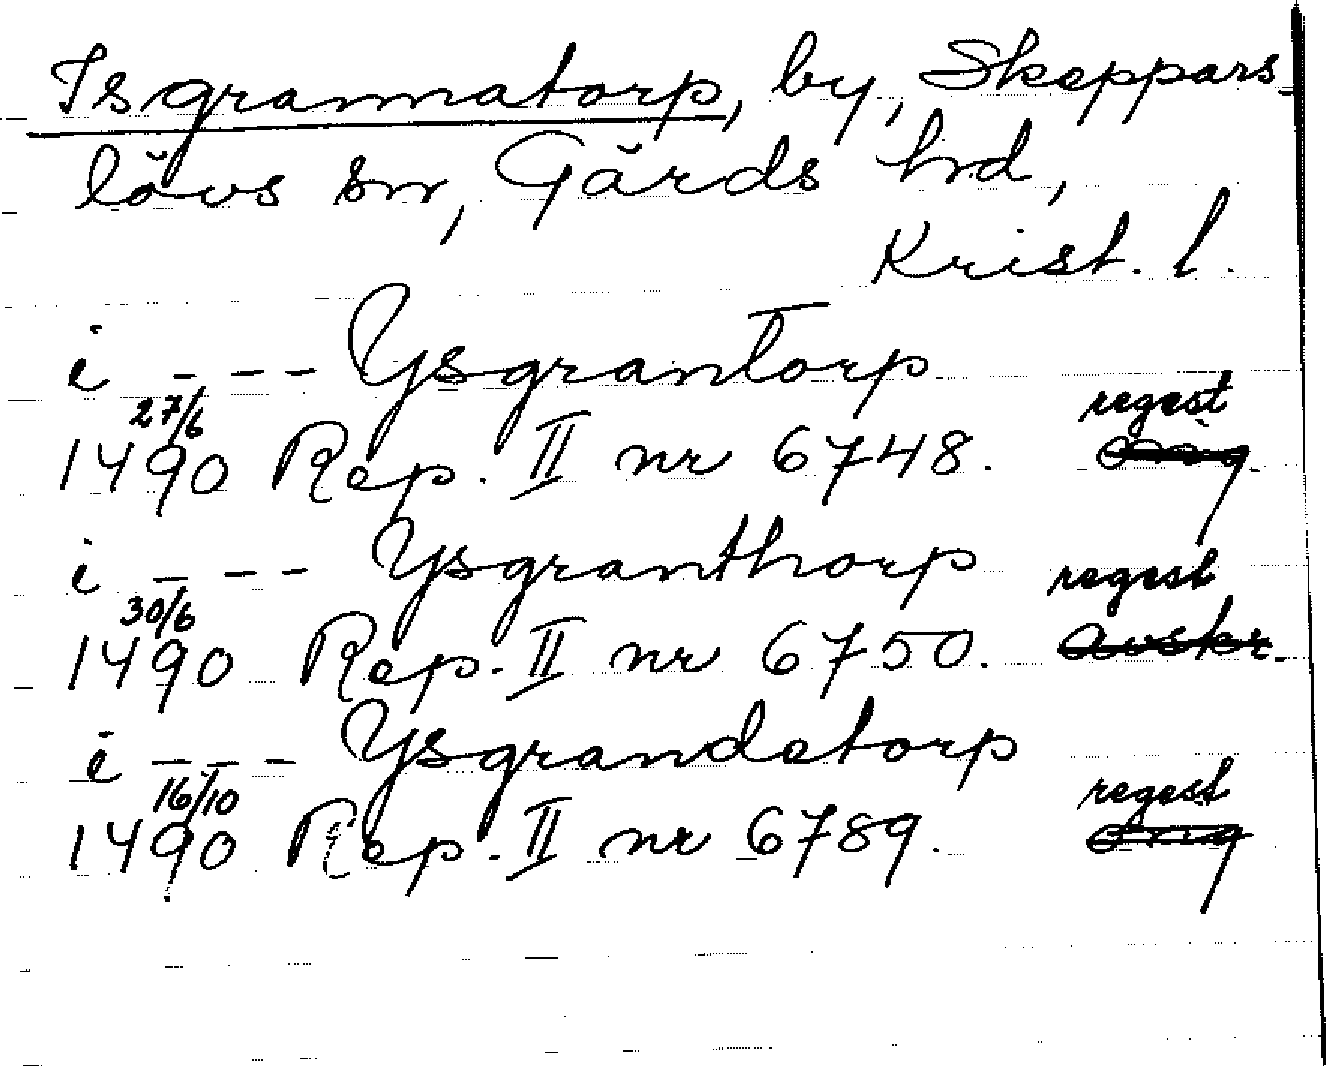 Isgrannatorp, by, Skeppars-
lövs sn, Gärds hd,
Krist. l.
i --- Ysgrantorp
27/6 regest
1490 Rep. II nr 6748. orig.
i --- Ysgranthorp
30/6 regest
1490 Rep. II nr 6750. avskr.
i --- Ysgrandetorp
16/10 regest
1490 Rep. II nr 6789. orig